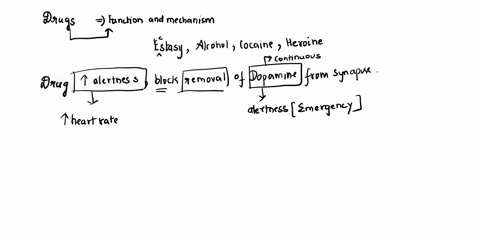 Drugs => function and mechanism
Ecstasy, Alcohol, Cocaine, Heroine
continuous
Drug ↑ alertness, block removal of Dopamine from synapse.
↑ heart rate
alertness [Emergency]